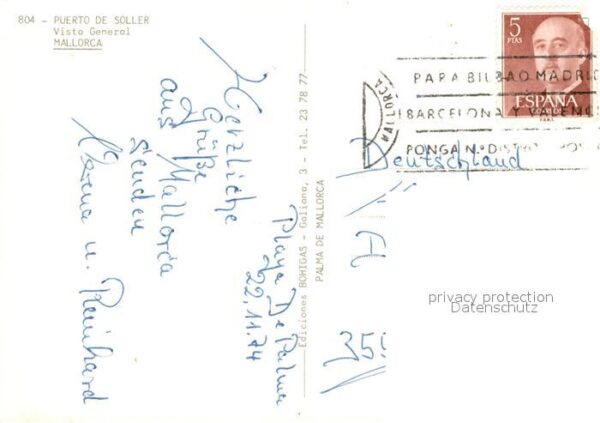 804 - PUERTO DE SOLLER
Vista General
MALLORCA
Playa De Palma
22.11.74
Herzliche
Grüße
aus Mallorca
senden
Verena u. Reinhard
Ediciones BOHIGAS - Galiana, 3 - Tel. 23 78 77
PALMA DE MALLORCA
5
PTAS
ESPAÑA
CORREOS
MALLORCA
PARA BILBAO MADRI
BARCELONA Y VALENC
PONGA N.º DISTRI
Deutschland
privacy protection
Datenschutz